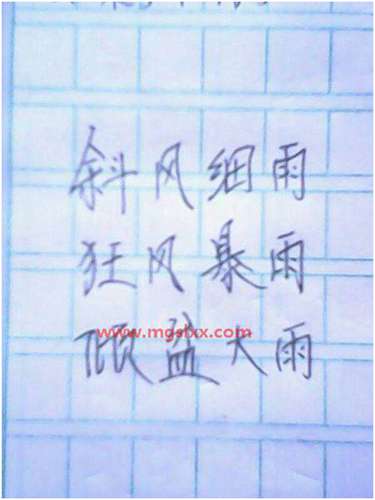 斜风细雨
狂风暴雨
www.mgslxx.com
倾盆大雨